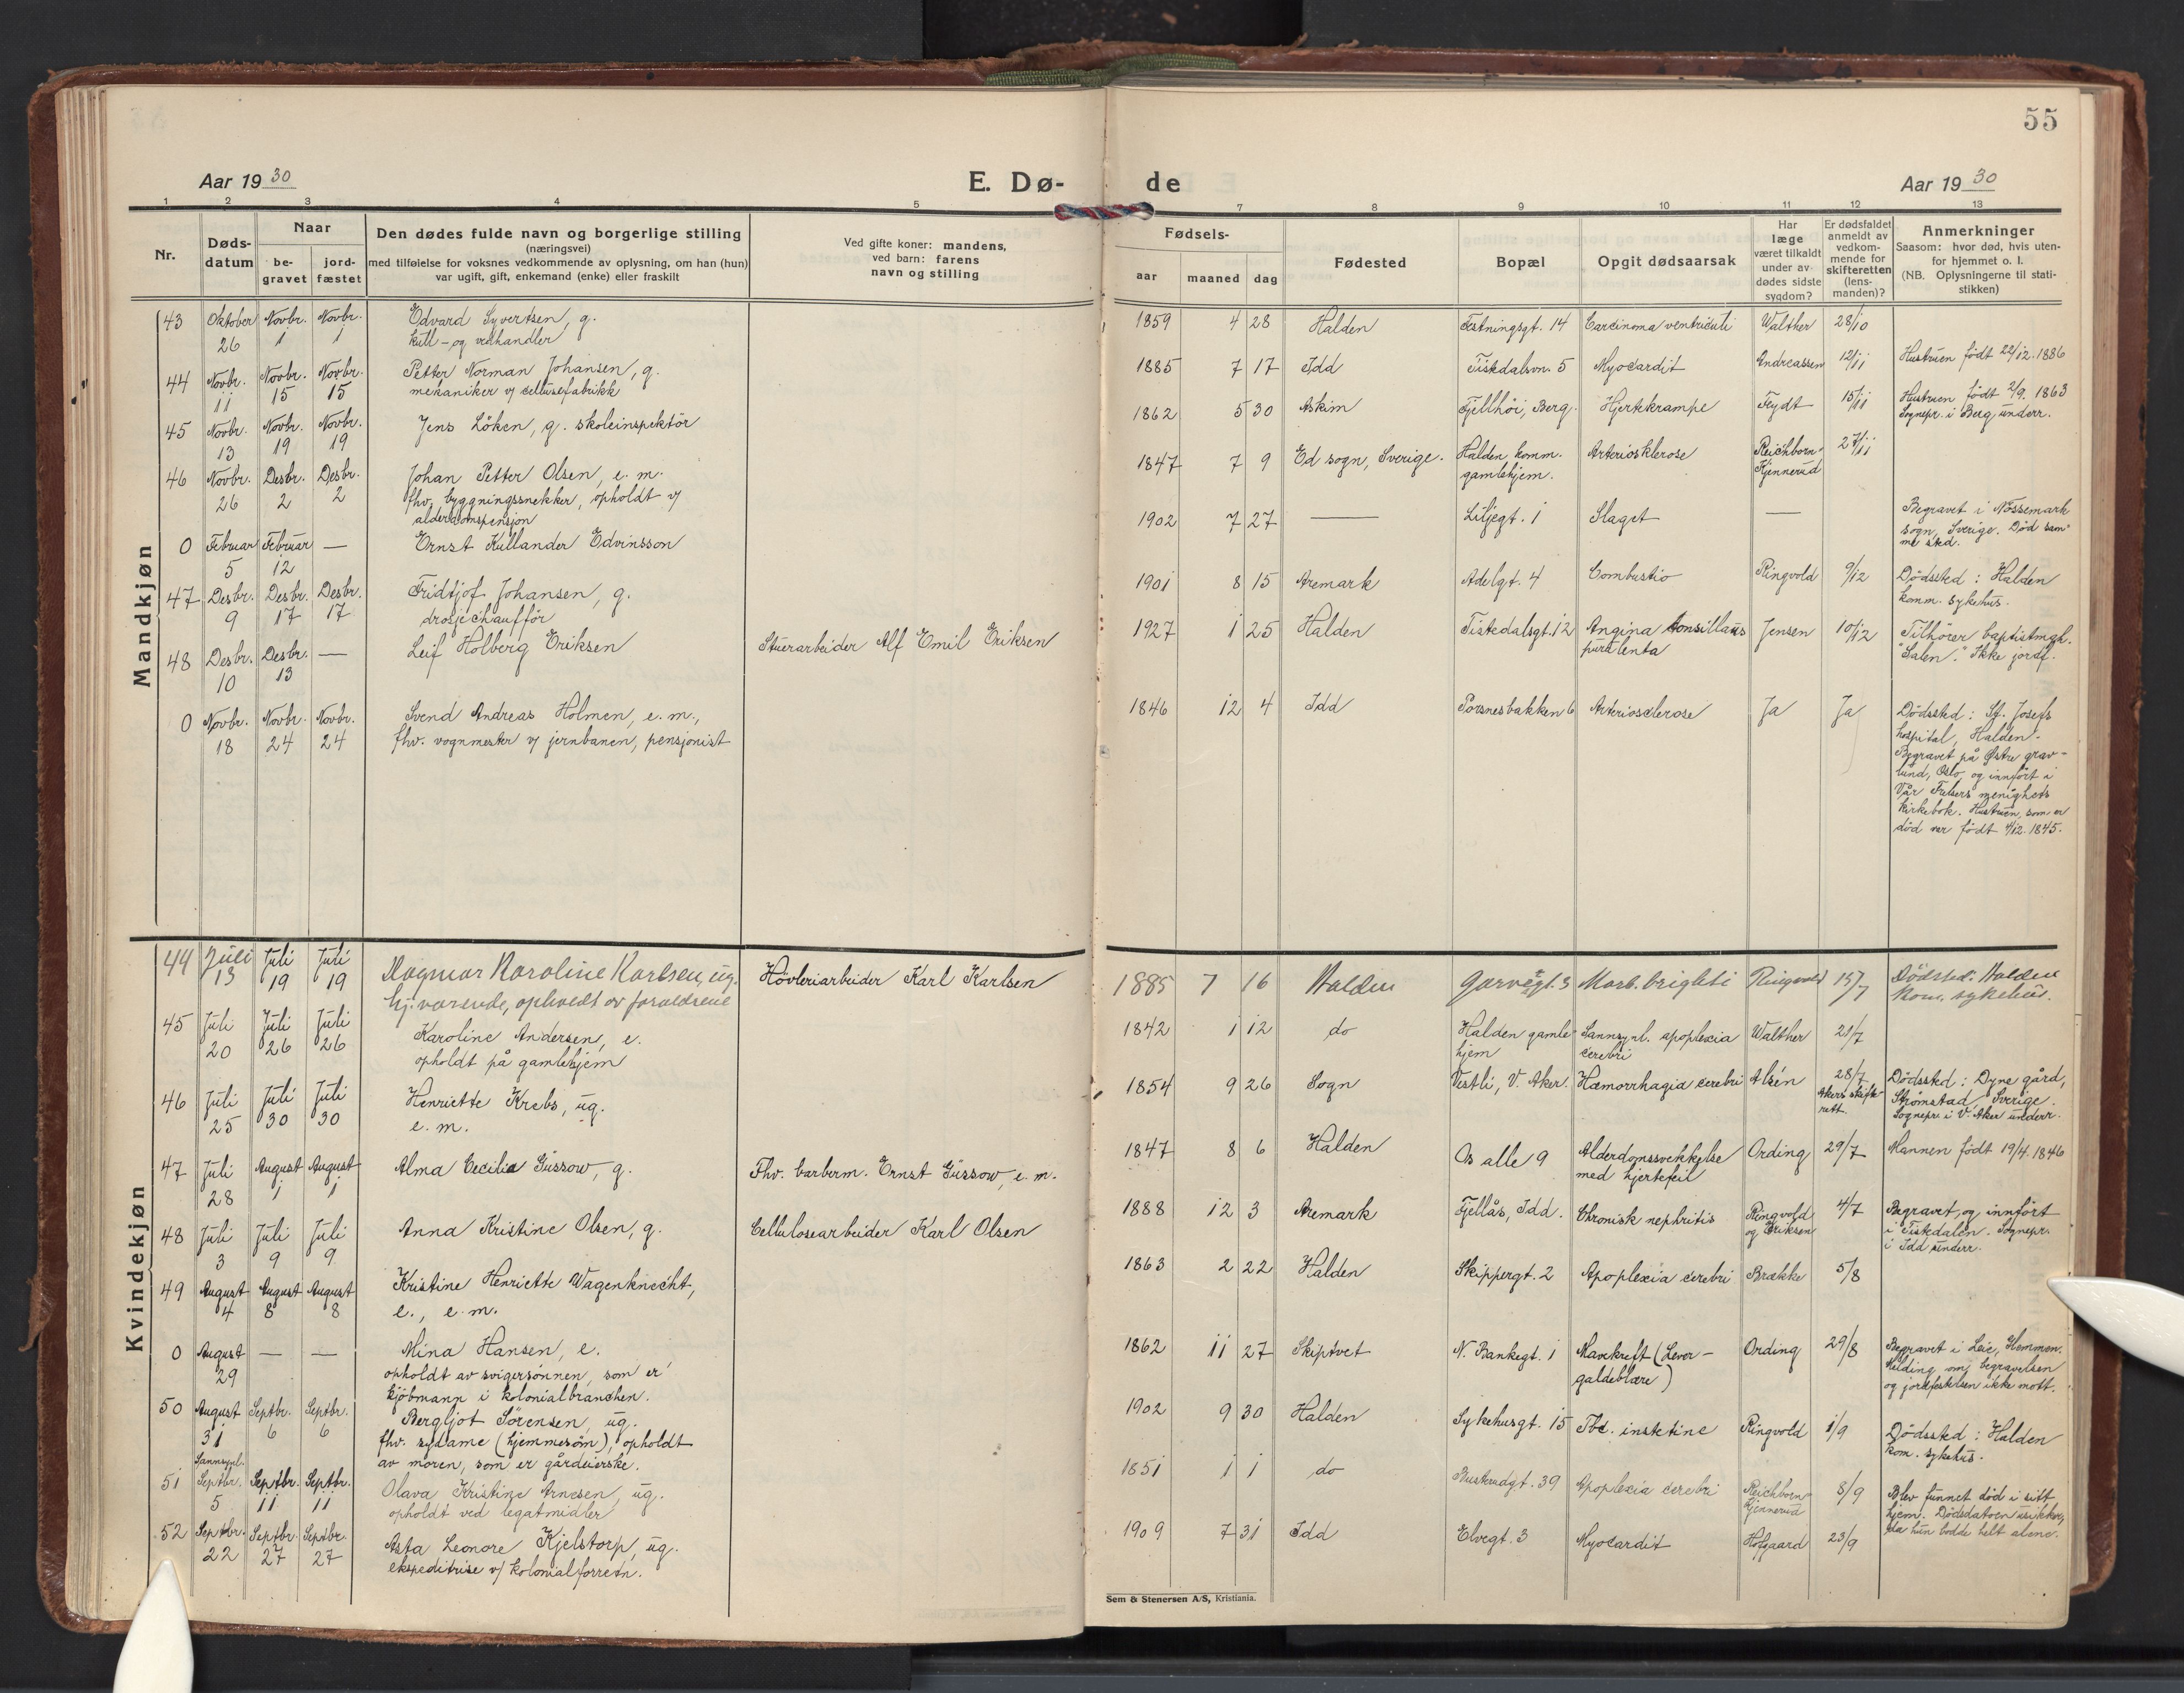 55
Aar 1930
E. Dø-
de
Aar 1930
1 2 3 4 5
7 8 9 10 11 12 13
Nr.
Døds-
datum
Naar
be-
gravet
jord-
fæstet
Den dødes fulde navn og borgerlige stilling
(næringsvei)
med tilføielse for voksnes vedkommende av oplysning, om han (hun)
var ugift, gift, enkemand (enke) eller fraskilt
Ved gifte koner: mandens,
ved barn: farens
navn og stilling
Fødsels-
aar maaned dag
Fødested
Bopæl
Opgit dødsaarsak
Har
læge
været tilkaldt
under av-
dødes sidste
sygdom?
Er dødsfaldet
anmeldt av
vedkom-
mende for
skifteretten
(lens-
manden)?
Anmerkninger
Saasom: hvor død, hvis uten-
for hjemmet o. l.
(NB. Oplysningerne til stati-
stikken)
Mandkjøn
43 Oktober Novbr. Novbr. Edvard Syvertsen, g.
26 1 1 kull- og vedhandler
1859 4 28 Halden Festningsgt. 14 Carcinoma ventriculi Walther 28/10
44 Novbr. Novbr. Novbr. Petter Norman Johansen, g.
11 15 15 mekaniker v/ cellusefabrikk
1885 7 17 Idd Tistedalsvn. 5 Myocardit Andreassen 12/11 Hustruen født 22/12. 1886
45 Novbr. Novbr. Novbr. Jens Löken, g. skoleinspektör
13 19 19
1862 5 30 Askim Fjellhöi, Berg. Hjertekrampe Feydt 15/11 Hustruen födt 2/9. 1863
Sognepr. i Berg underr.
46 Novbr. Desbr. Desbr. Johan Petter Olsen, e. m.
26 2 2 fhv. byggningssnekker, opholdt v/
alderdomspensjon
1847 7 9 Ed sogn, Sverige. Halden komm. Arteriosklerose Reichborn- 27/11
gamlehjem. Kjennerud
0 Februar Februar — Ernst Kullander Edvinsson
5 12
1902 7 27 — Liljegt. 1 Slaget — Begravet i Nössemark
sogn, Sverige. Död sam-
me sted.
47 Desbr. Desbr. Desbr. Fridtjof Johansen, g.
9 17 17 drosjechaufför
1901 8 15 Aremark Adelgt. 4 Combustio Ringvold 9/12 Dödssted: Halden
komm. sykehus.
48 Desbr. Desbr. — Leif Holberg Eriksen Stuerarbeider Alf Emil Eriksen
10 13
1927 1 25 Halden Tistedalsgt. 12 Angina tonsillaris Jensen 10/12 Tilhörer baptistmgh.
purulenta "Salen." Ikke jordf.
0 Novbr. Novbr. Novbr. Svend Andreas Holmen, e. m.,
18 24 24 fhv. vognmester v/ jernbanen, pensjonist
1846 12 4 Idd Porsnesbakken 6 Arteriosclerose Ja Ja Dödssted: St. Josefs
hospital, Halden.
Begravet på Østre grav-
lund, Oslo, og innfört i
Vår Frelsers menighets
kirkebok. Hustruen, som er
död var födt 4/12. 1845.
Kvindekjøn
44 Juli Juli Juli Dagmar Karoline Karlsen, ug. Hövleriarbeider Karl Karlsen
13 19 19 hj. værende, opholdt av foreldrene
1885 7 16 Halden Garvegt. 3 Morb. brighti Ringvold 15/7 Dödssted: Halden
kom. sykehus.
45 Juli Juli Juli Karoline Andersen, e.
20 26 26 opholdt på gamlehjem
1842 1 12 do Halden gamle- Sannsynl. apoplexia Walther 21/7
hjem cerebri
46 Juli Juli Juli Henriette Krebs, ug.
25 30 30 e. m.
1854 9 26 Sogn Vestli, V. Aker. Hæmorrhagia cerebri Alsén 28/7 Dödssted: Dyne gård,
Akers skifte- Strømstad, Sverige.
rett. Sognepr. i V. Aker underr.
47 Juli August August Alma Cecilia Güssow, g. Fhv. barberm. Ernst Güssow, e. m.
28 1 1
1847 8 6 Halden Os alle 9 Alderdomssvekkelse Ording 29/7 Mannen født 19/4. 1846
med hjertefeil
48 Juli Juli Juli Anna Kristine Olsen, g. Cellulosearbeider Karl Olsen
3 9 9
1888 12 3 Aremark Fjellås, Idd. Chronisk nephritis Ringvold 4/7 Begravet og innfört
og Eriksen i Tistedalen. Sognepr.
i Idd underr.
49 August August August Kristine Henriette Wagenknecht,
4 8 8 e., e. m.
1863 2 22 Halden Skippergt. 2 Apoplexia cerebri Brække 5/8
0 August — — Mina Hansen, e.
29 opholdt av svigersönnen, som er
kjöbmann i kolonialbranchen.
1862 11 27 Skiptvet N. Bankegt. 1 Mavekreft (Lever- Ording 29/8 Begravet i Leie, Hemmen.
galdeblære) Melding om begravelsen
og jordfestelsen ikke mott.
50 August Septbr. Septbr. Bergljot Sörensen, ug.
31 6 6 fhv. sydame (hjemmesöm), opholdt
av moren, som er gårdeierske.
1902 9 30 Halden Sykehusgt. 15 Tbc. instetine Ringvold 1/9 Dödssted: Halden
kom. sykehus.
Sannsynl.
51 Septbr. Septbr. Septbr. Olava Kristine Arnesen, ug.
5 11 11 opholdt ved legatmidler
1851 1 1 do Buskerudgt. 39 Apoplexia cerebri Reichborn- 8/9 Blev funnet död i sitt
Kjennerud hjem. Dödsdatoen usikker,
da hun bodde helt alene.
52 Septbr. Septbr. Septbr. Asta Leonore Kjelstorp, ug.
22 27 27 ekspeditrise v/ kolonialforretn.
1909 7 31 Idd Elvegt. 3 Myocardit Hofgaard 23/9
Sem & Stenersen A/S, Kristiania.